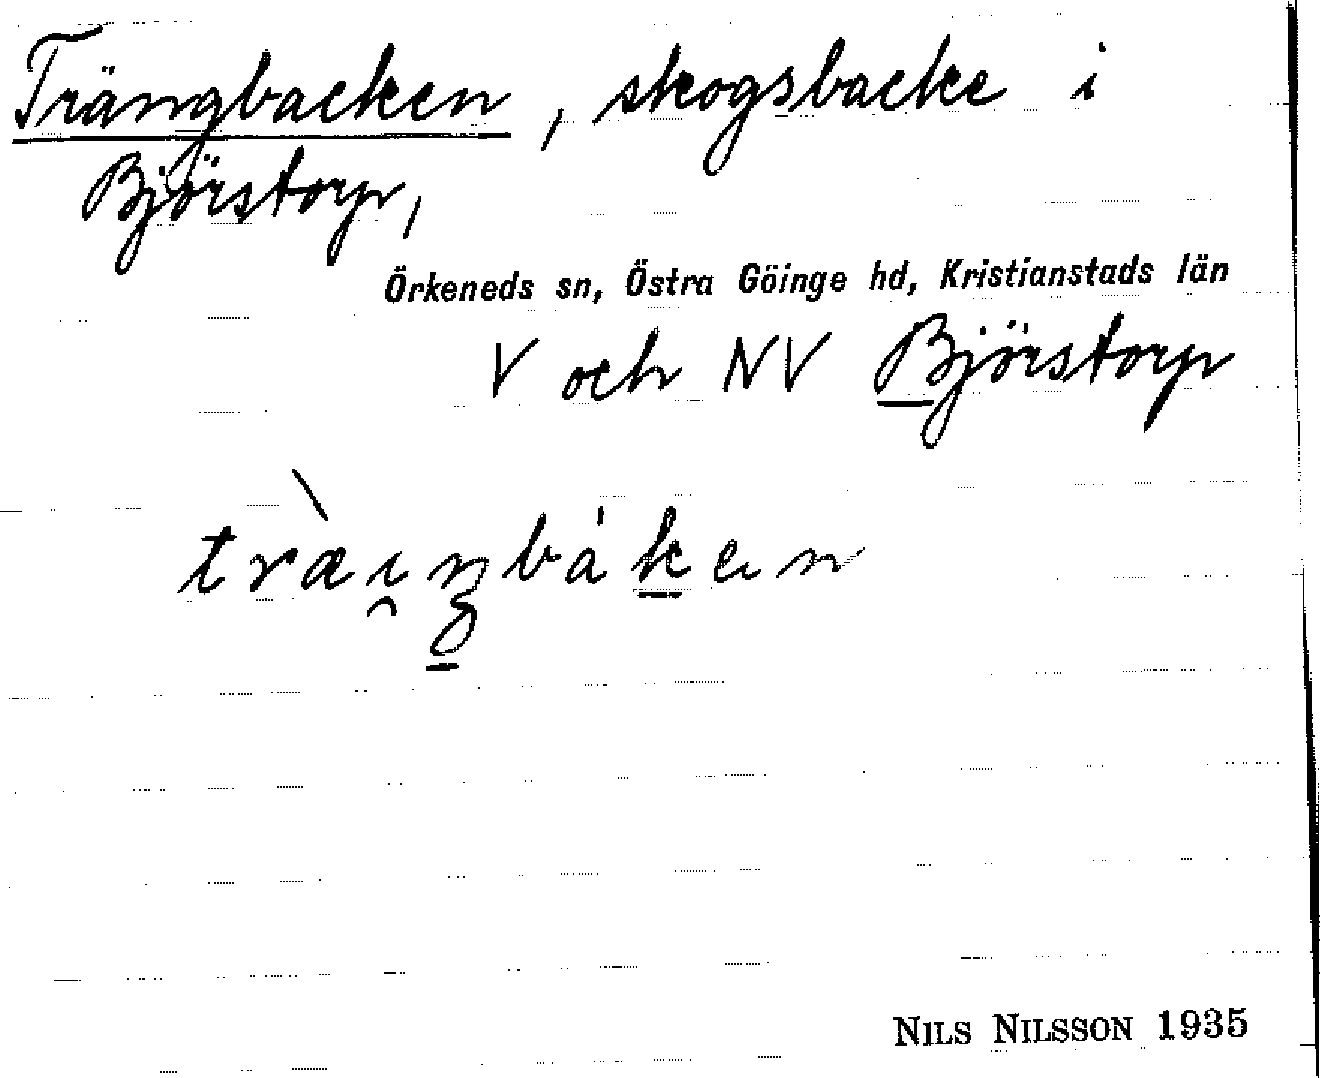 Trängbacken, skogsbacke i
Björstorp,
Örkeneds sn, Östra Göinge hd, Kristianstads län
V och NV Björstorp
NILS NILSSON 1935